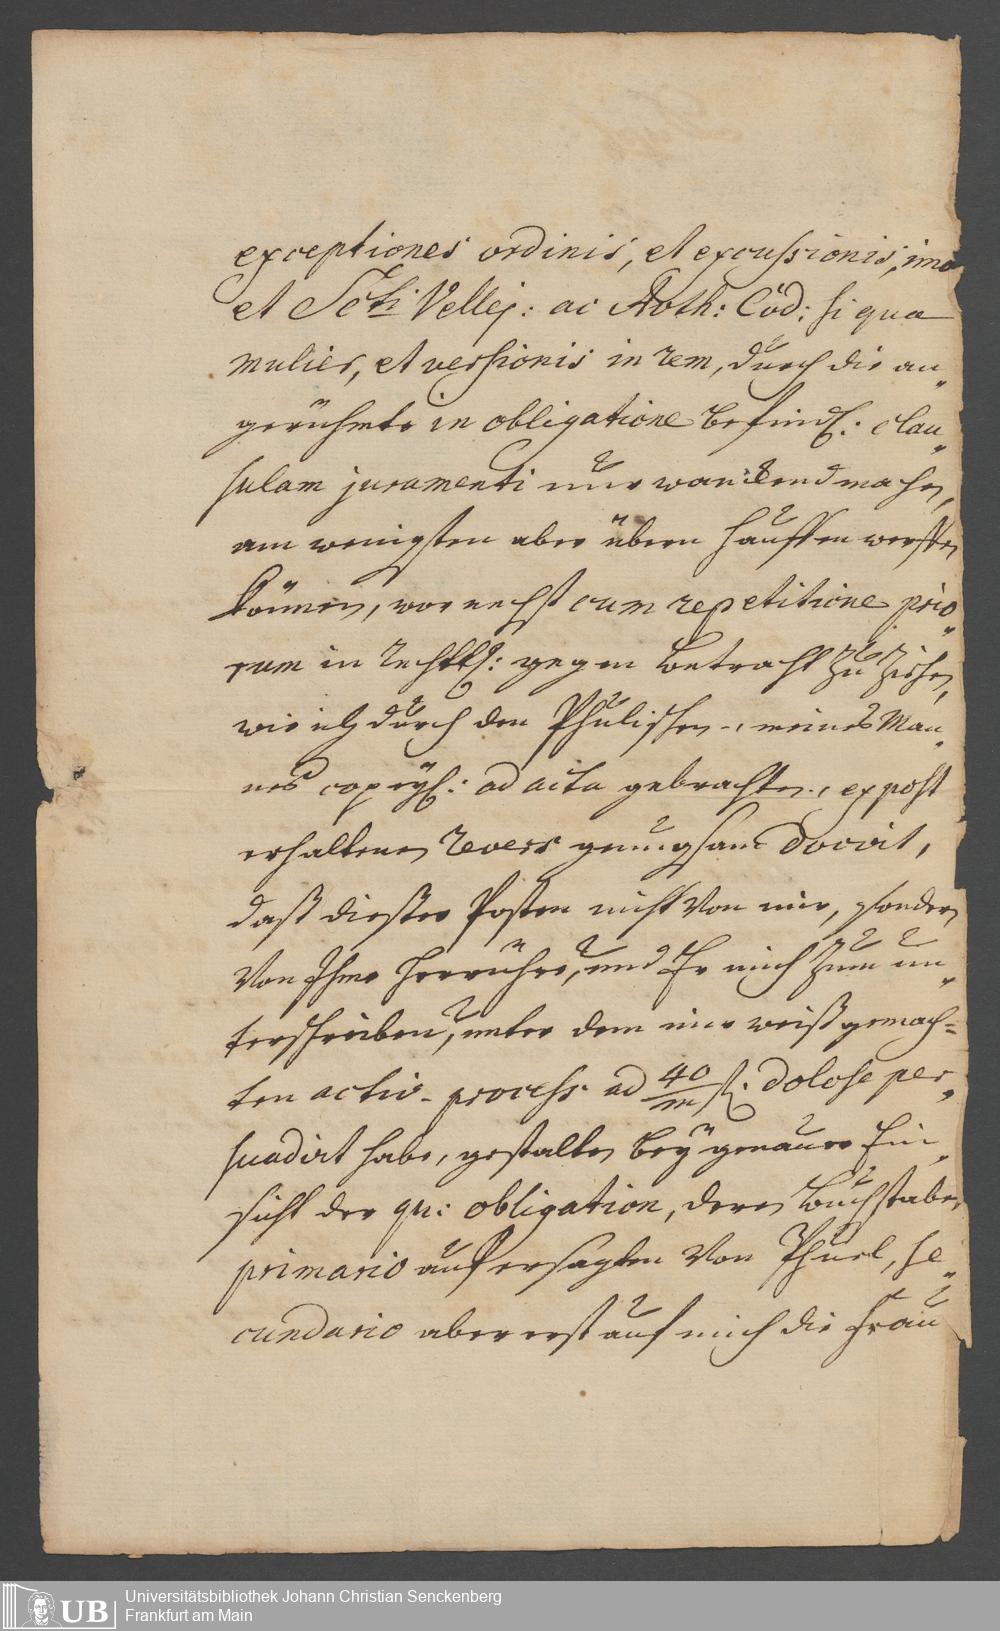 exceptiones ordinis, et excussionis, imo
et Scti Vellej: ac Auth: Cod: si qua
mulier, et versionis in rem, durch die an„
gerühmte in obligatione befindl: clau„
sulam juramenti nur wanckend machen,
am wenigsten aber übern Hauffen werffen
können, wornechst cum repetitione prio„
rum in rechtl: gegen betracht zu ziehen,
wie ich durch den Phulischen, meines Man„
nes copeyl: ad acta gebrachten, ex post
erhaltenen revers genugsam docirt,
daß dießer Posten nicht von mir, sondern
von Ihme herrühre, und Er mich zum un„
terschreiben, unter dem mir weiß gemach=
ten activ-process ad 40/m fl: dolose per„
suadirt habe, gestalten bey genauer Ein„
sicht der qu: obligation, deren Buchstaben
primario auf ersagten von Phuel, se„
cundario aber erst auf mich die Frau
Universitätsbibliothek Johann Christian Senckenberg
Frankfurt am Main
UB